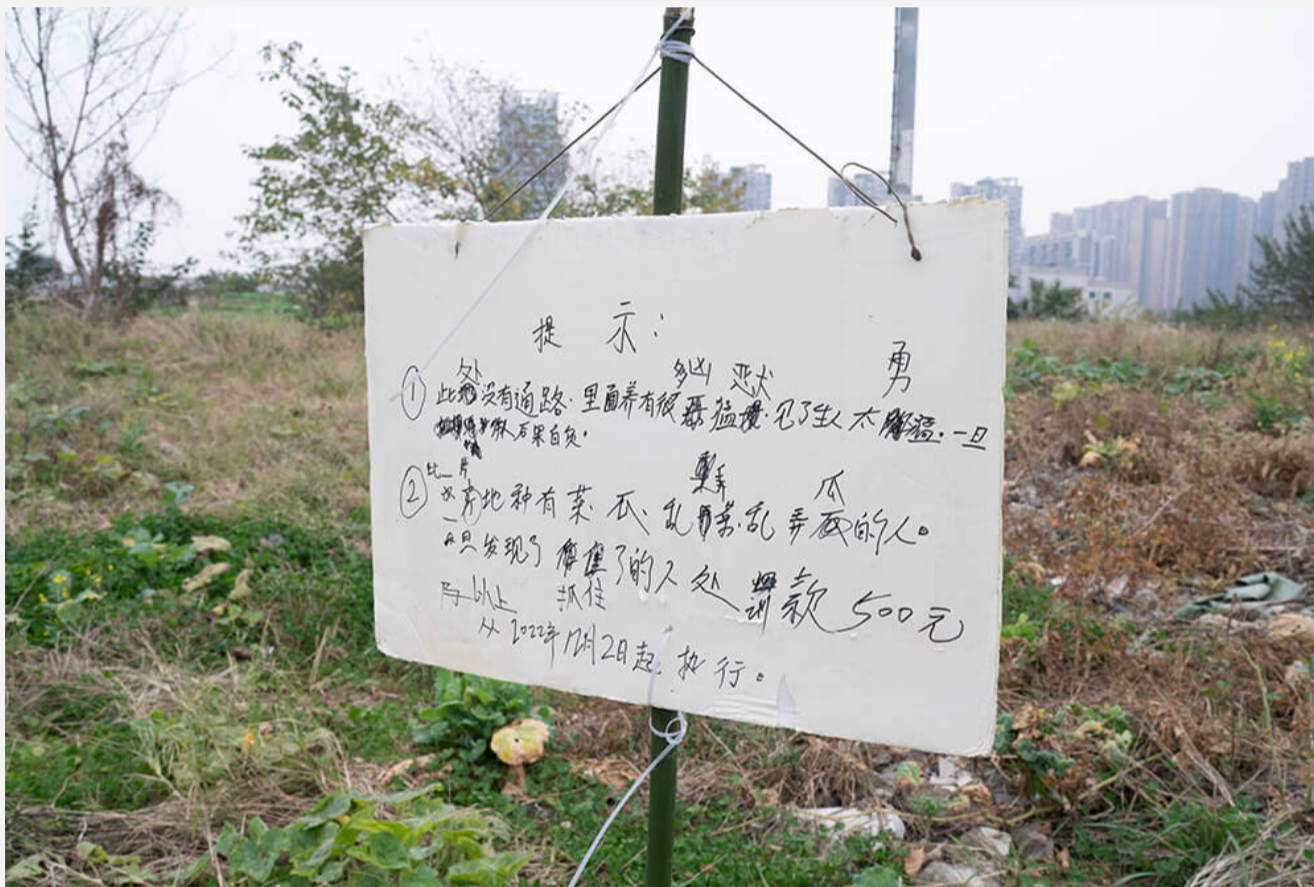 提 示：
① 此处没有通路.里面养有很多凶猛恶犬.见了生人太勇猛.一旦
后果自负。
② 此片荒地种有菜.瓜.乱弄菜.乱弄瓜的人。
一旦发现了 抓住了的人处罚款500元
与以上
从2022年12月2日起执行。